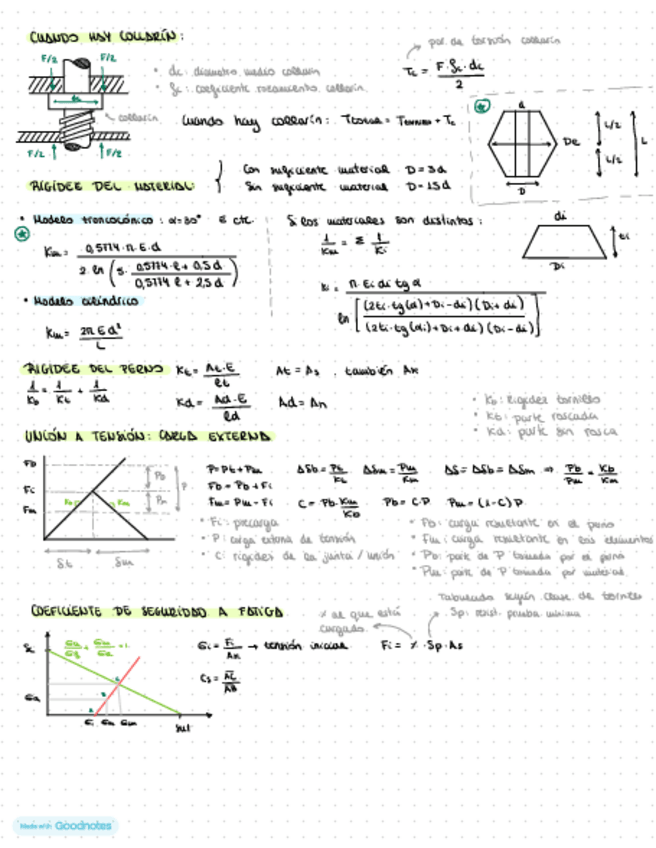 CUANDO HAY COLLARÍN:
F/2 F/2
dc
collarín
F/2 F/2
• dc: diámetro medio collarín
• fc: coeficiente rozamiento collarín
par de torsión collarín
Tc = F·fc·dc / 2
Cuando hay collarín: Ttotal = Ttornillo + Tc
d
De
D
L/2
L/2
L
RIGIDEZ DEL MATERIAL:
Con suficiente material D=3d
Sin suficiente material D=1,5d
• Modelo troncocónico: α=30° E cte.
Km = 0,5774·π·E·d / 2 ln (5· 0,5774·l + 0,5d / 0,5774 l + 2,5d)
• Modelo cilíndrico
Km = 2πEd² / L
Si los materiales son distintos:
1/Km = Σ 1/Ki
di
ti
Di
ki = π Ei di tg α / ln [ (2ti·tg(α)+Di-di)(Di+di) / (2ti·tg(αi)+Di+di)(Di-di) ]
RIGIDEZ DEL PERNO
1/Kb = 1/Kt + 1/Kd
Kt = At·E / lt At = As, también Ar
Kd = Ad·E / ld Ad = An
• Kb: rigidez tornillo
• Kt: parte roscada
• Kd: parte sin rosca
UNIÓN A TENSIÓN: CARGA EXTERNA
Fb
Fi
Fm
Kb Km
Pb
Pm
P
δt δm
P = Pb + Pm Δδb = Pb/Kb Δδm = Pm/Km Δδ = Δδb = Δδm ⇒ Pb/Pm = Kb/Km
Fb = Pb + Fi
Fm = Pm - Fi C = Pb·Km/Kb Pb = C·P Pm = (1-C)P
• Fi: precarga
• P: carga externa de tensión
• C: rigidez de la junta / unión
• Fb: carga resultante en el perno
• Fm: carga resultante en los elementos
• Pb: parte de P tomada por el perno
• Pm: parte de P tomada por material
COEFICIENTE DE SEGURIDAD A FATIGA
Se
σa/Se + σm/σut = 1
σa
σi σa σm Sut
σi = Fi/Ar → tensión inicial
Cs = AC/AB
% al que está
cargado
Fi = %·Sp·As
Tabulado según clase de tornillo
Sp: resist. prueba mínima
Made with Goodnotes